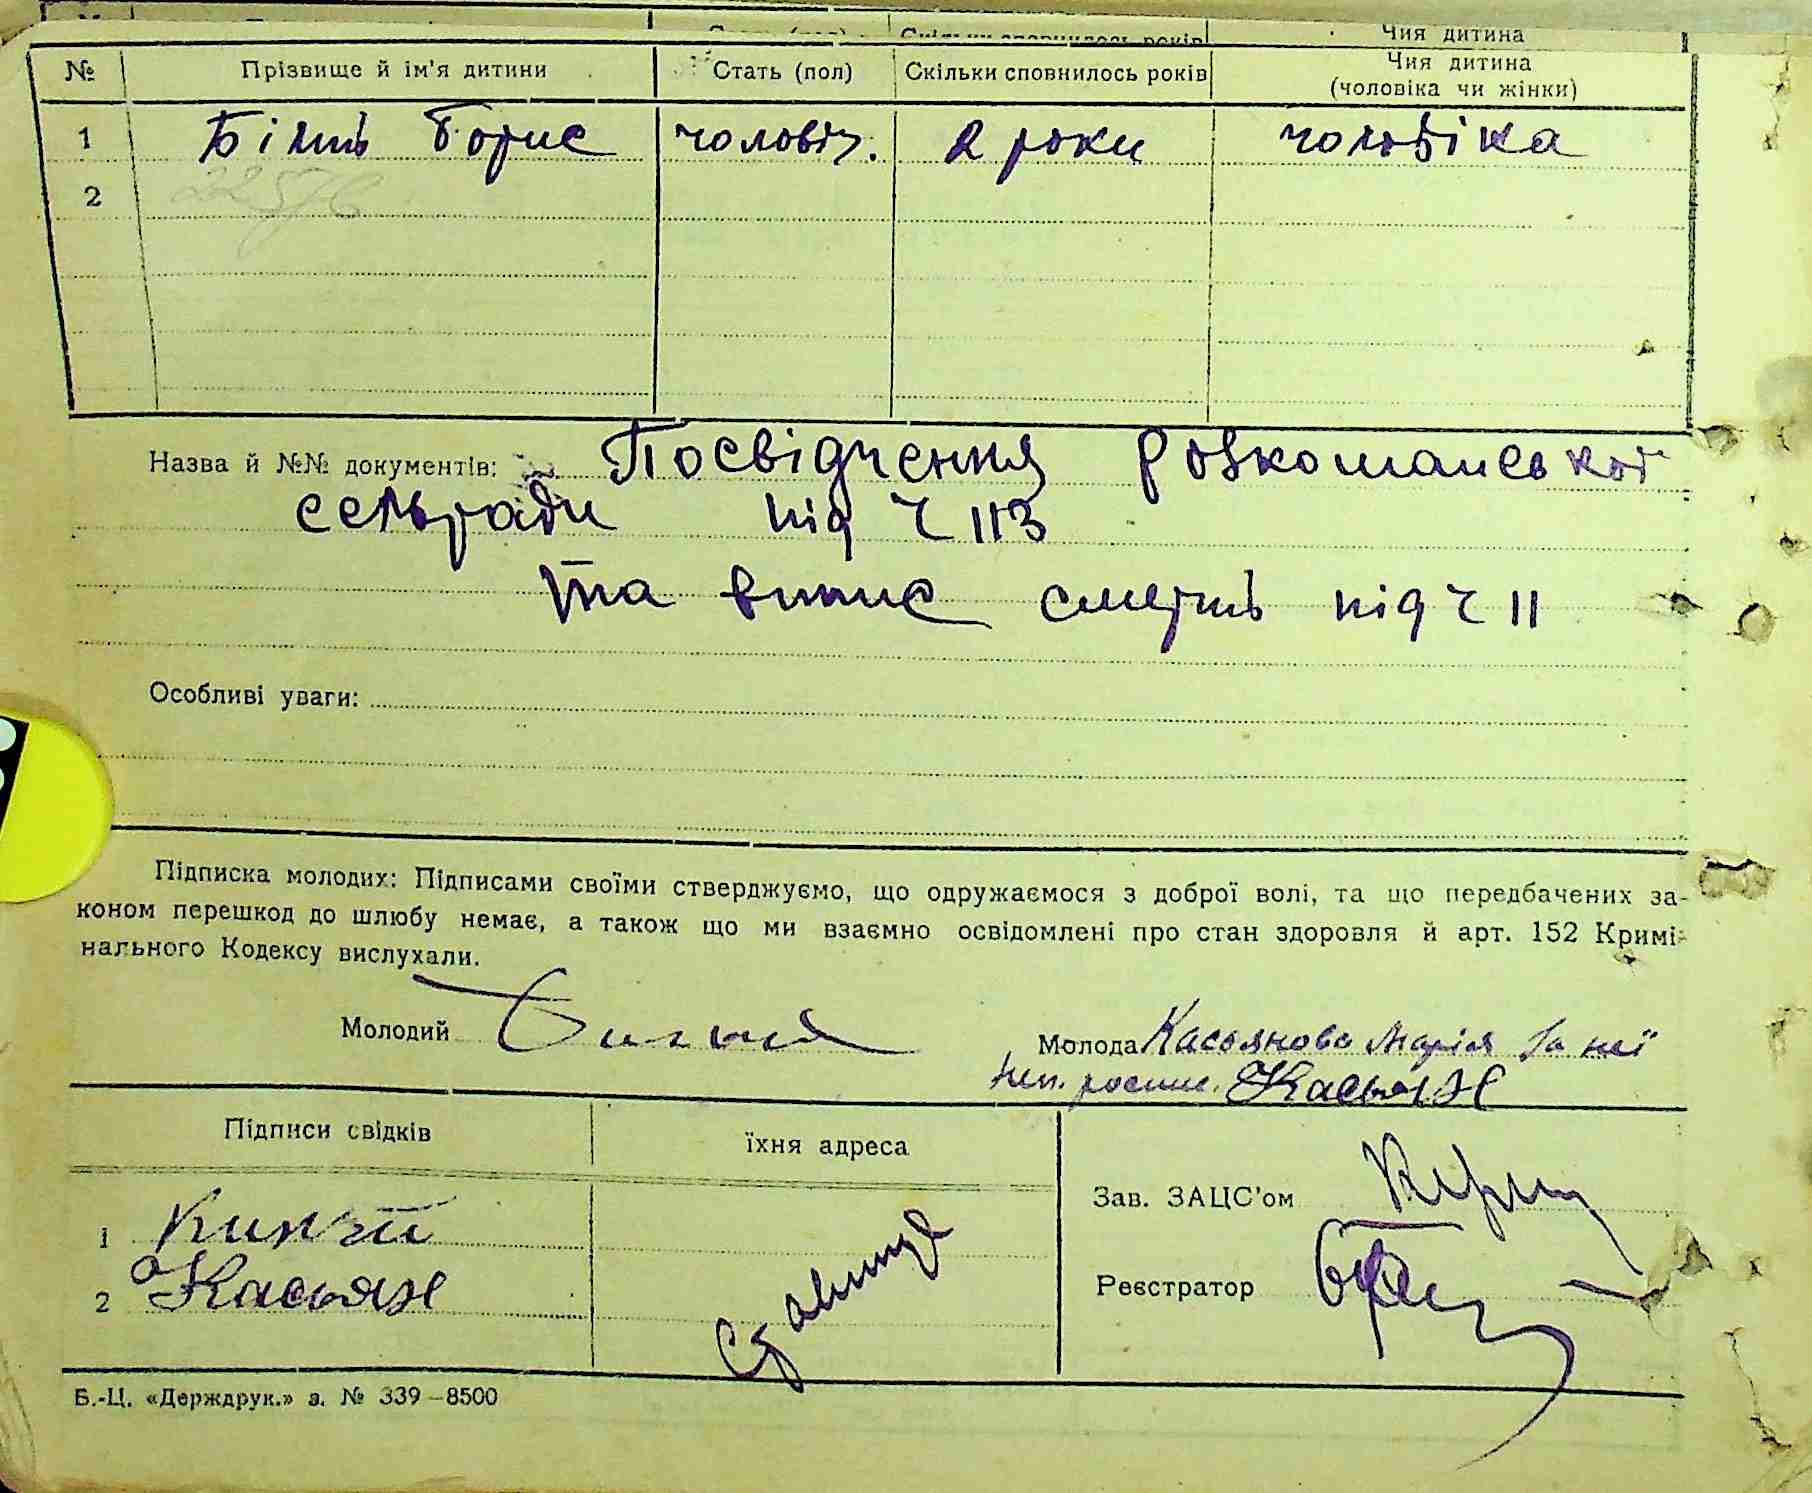 Чия дитина
№ Прізвище й ім'я дитини Стать (пол) Скільки сповнилось років Чия дитина (чоловіка чи жінки)
1 Борис чоловіч. 2 роки чоловіка
2
Назва й №№ документів: Посвідчення розкошанської
сельради під Ч 113
та випис смерть під Ч 11
Особливі уваги:
Підписка молодих: Підписами своїми стверджуємо, що одружаємося з доброї волі, та що передбачених за-
коном перешкод до шлюбу немає, а також що ми взаємно освідомлені про стан здоровля й арт. 152 Кримі-
нального Кодексу вислухали.
Молодий Молода Касьянова Марія За неї
неп. роспис. Касьян
Підписи свідків їхня адреса
Зав. ЗАЦС'ом
1
2 Касьян
Реєстратор
Б.-Ц. «Держдрук.» з. № 339–8500